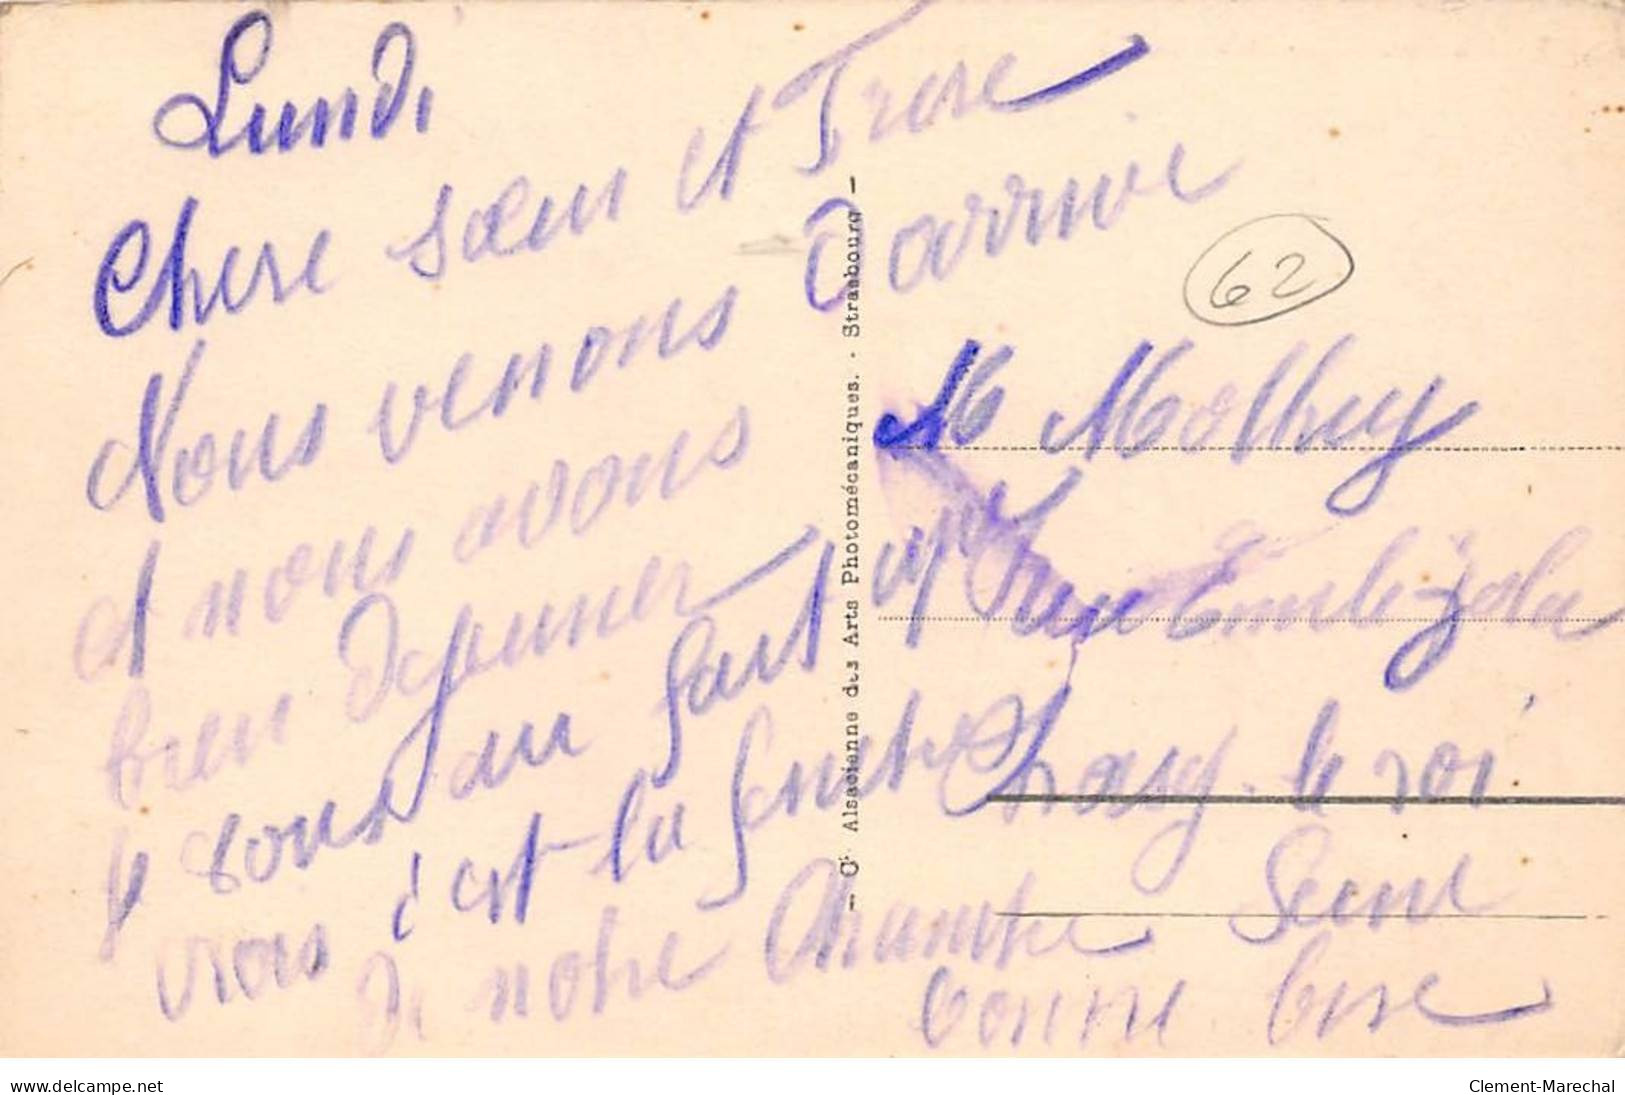 Lundi
Chere sœur et Frere
Nous venons D'arrivé
et nous avons
bien dejeuner
je vous au fait
vrai c'est la fenetre
De notre Chambre
bonne bise
62
M Molhuy
rue Emile Zola
Choisy-le-roi
Seine
— Cie Alsacienne des Arts Photomécaniques. - Strasbourg —
www.delcampe.net
Clement-Marechal